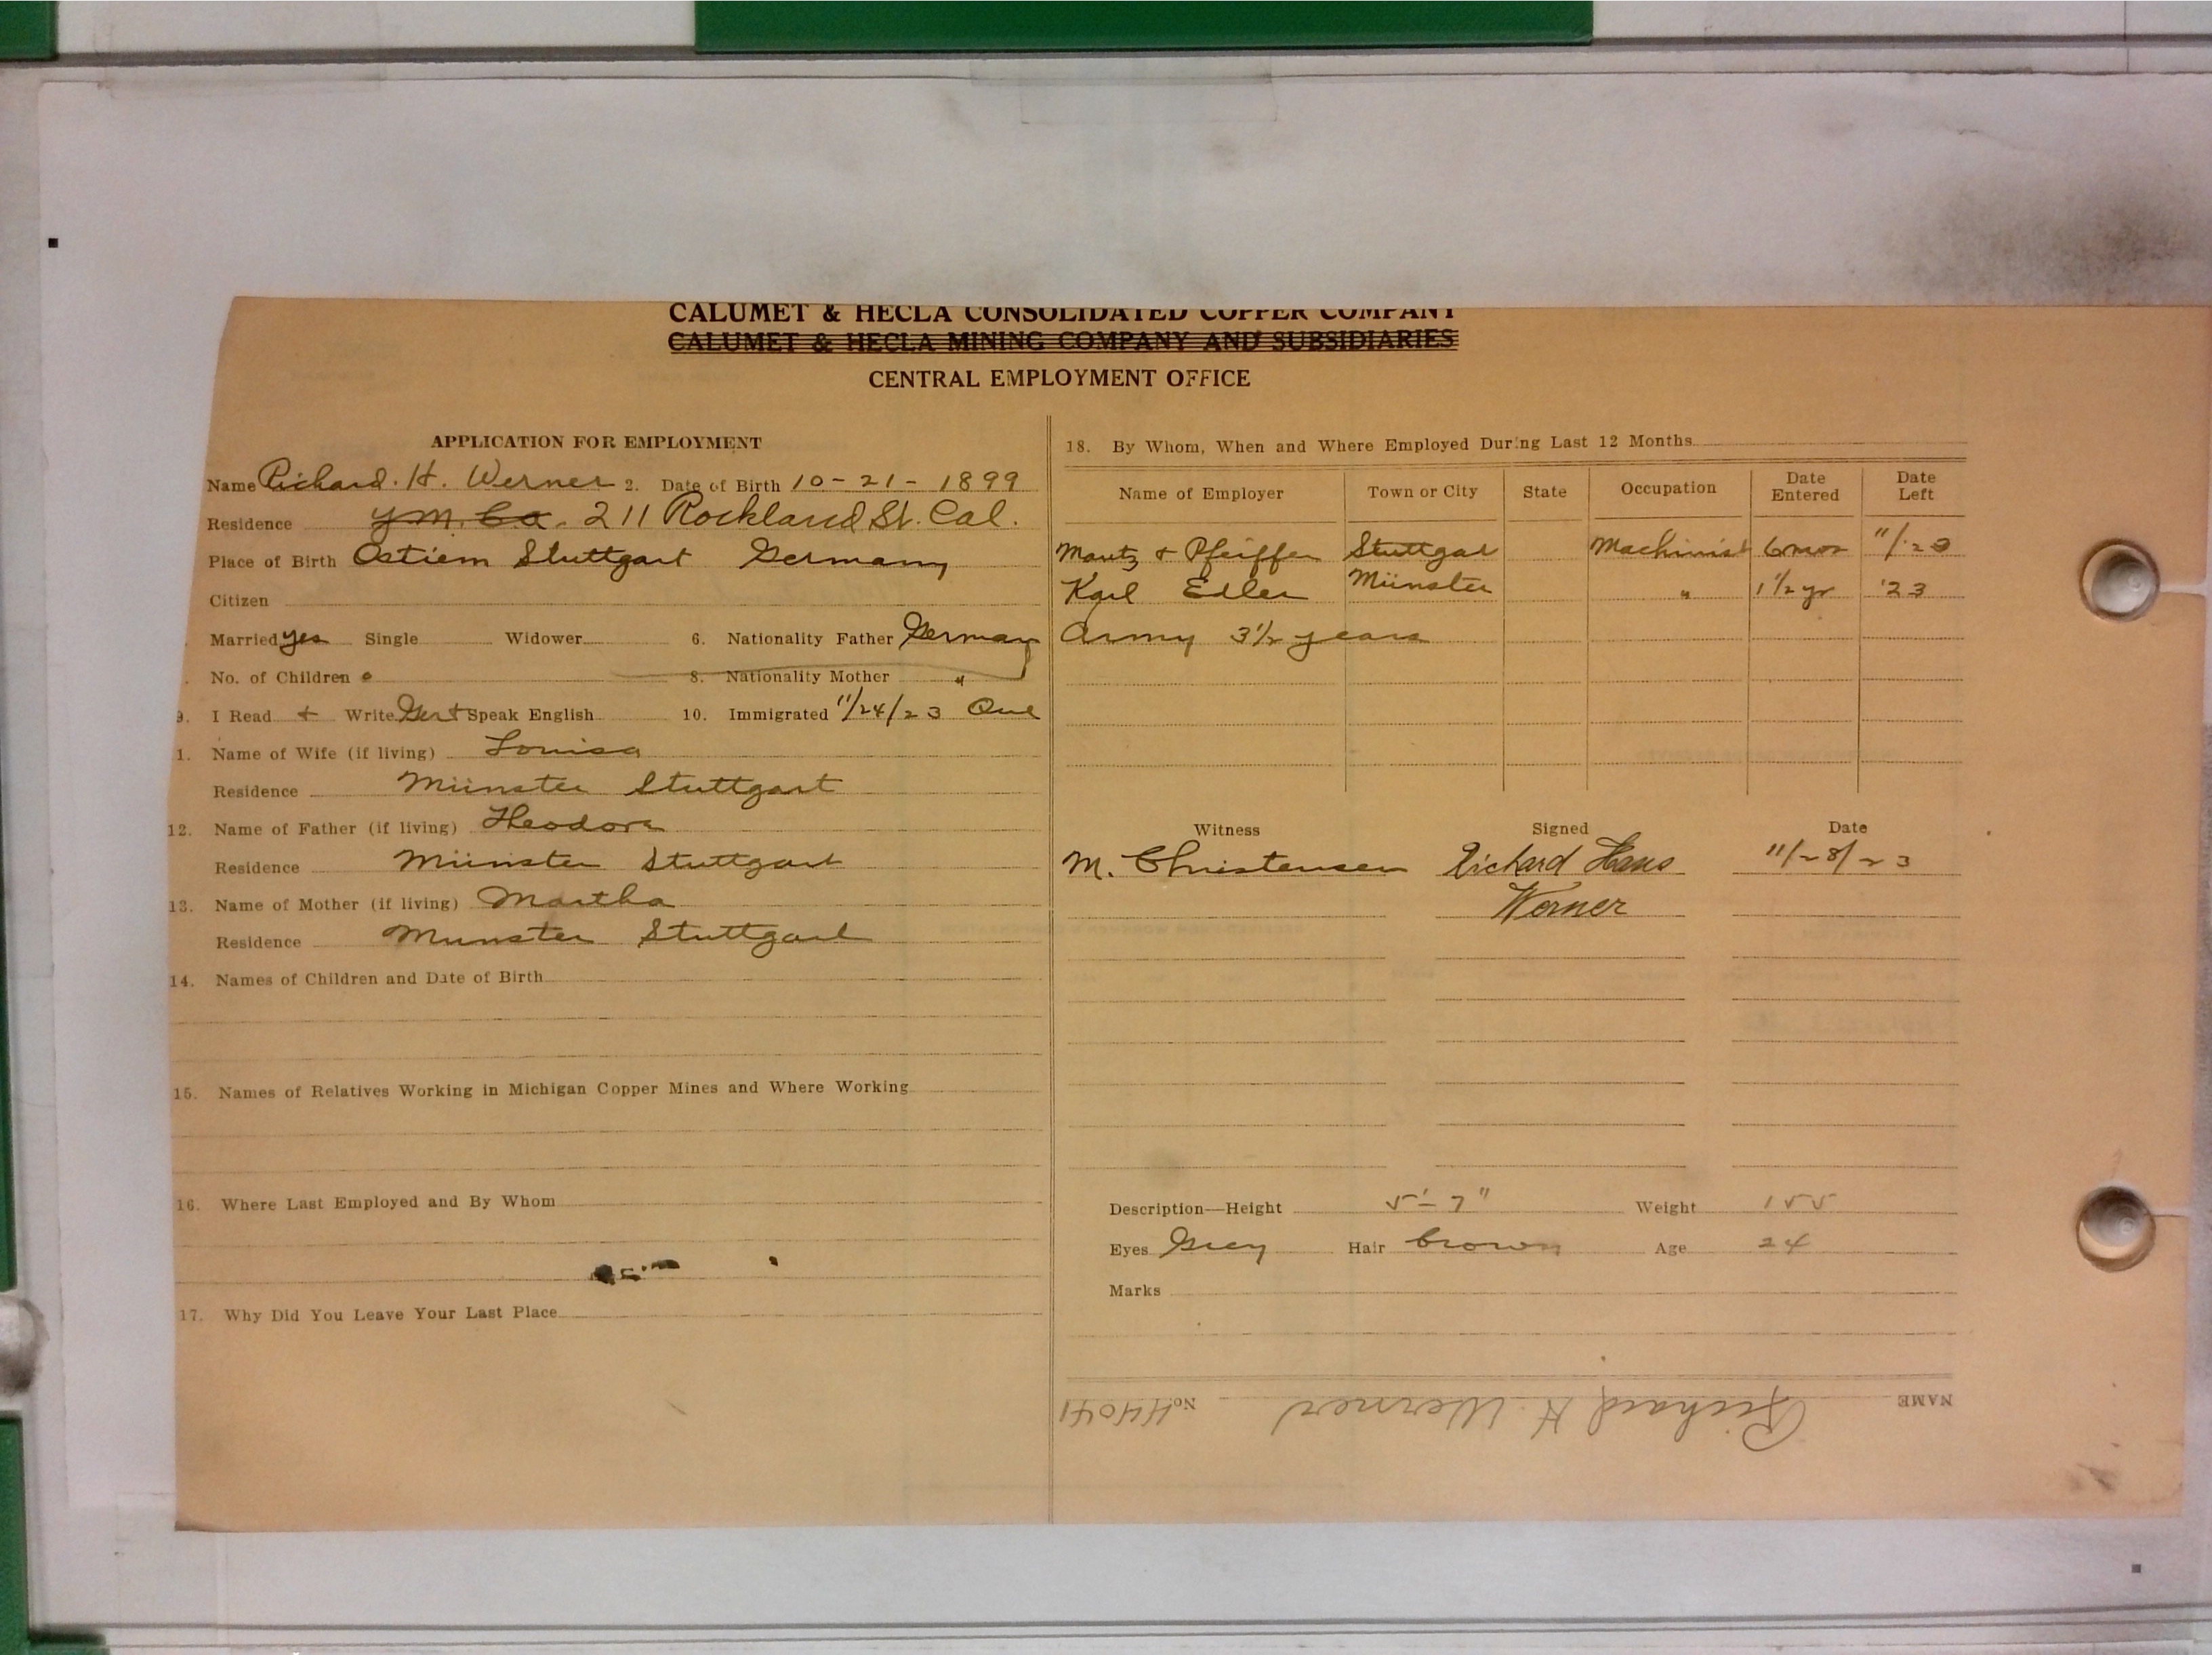 CALUMET & HECLA CONSOLIDATED COPPER COMPANY
CALUMET & HECLA MINING COMPANY AND SUBSIDIARIES
CENTRAL EMPLOYMENT OFFICE
APPLICATION FOR EMPLOYMENT
Name Richard. H. Werner 2. Date of Birth 10-21-1899
Residence Y.M.C.A. 211 Rockland St. Cal.
Place of Birth Ostiem Stuttgart Germany
Citizen
Married yes Single Widower 6. Nationality Father German
No. of Children 0 8. Nationality Mother "
9. I Read + Write Ger + Speak English 10. Immigrated 11/24/23
1. Name of Wife (if living) Louisa
Residence Münster Stuttgart
12. Name of Father (if living) Theodore
Residence Münster Stuttgart
13. Name of Mother (if living) Martha
Residence Munster Stuttgart
14. Names of Children and Date of Birth
15. Names of Relatives Working in Michigan Copper Mines and Where Working
16. Where Last Employed and By Whom
17. Why Did You Leave Your Last Place
18. By Whom, When and Where Employed During Last 12 Months
Name of Employer Town or City State Occupation Date Entered Date Left
Mautz & Pfeiffer Stuttgar Machinist 6 mos 11/23
Karl Edler Münster " 1 1/2 yr '23
Army 3 1/2 years
Witness Signed Date
M. Christensen Richard Hans 11/28/23
Werner
Description—Height 5'-7" Weight 155
Eyes Grey Hair brown Age 24
Marks
NAME Richard H. Werner No. 44041